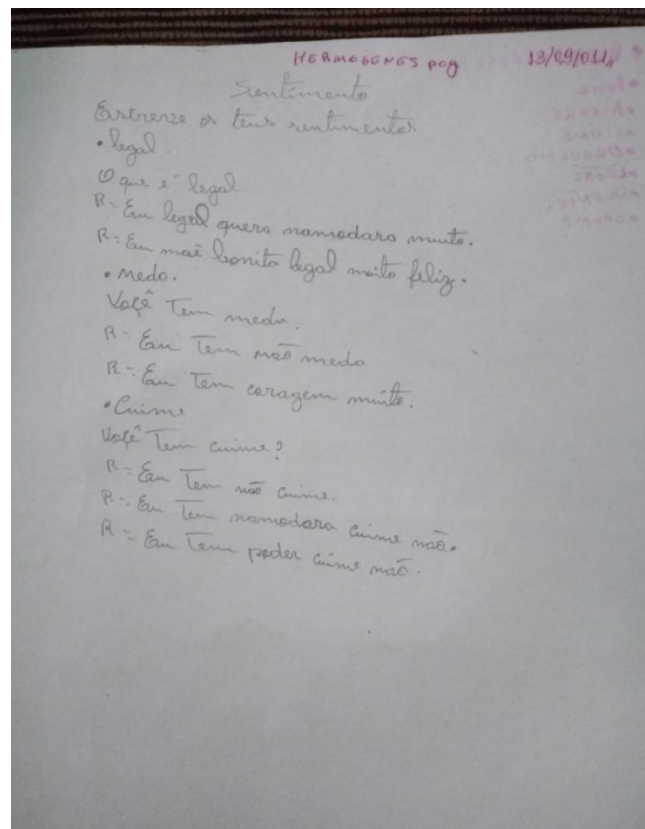 HERMOGENES pog 13/09/011
Sentimento
Escreve os teus sentimentos
• legal.
O que é legal
R = Eu legal quero namodara muito.
R: Eu maẽ bonita legal muito feliz.
• Medo.
Voçê Tem medo.
R: Eu Tem não medo
R: Eu Tem coragem muito.
• Cuime
Voçê Tem cuime?
R = Eu Tem não cuime.
R: Eu Tem namodara cuime não.
R = Eu Tem poder cuime não.